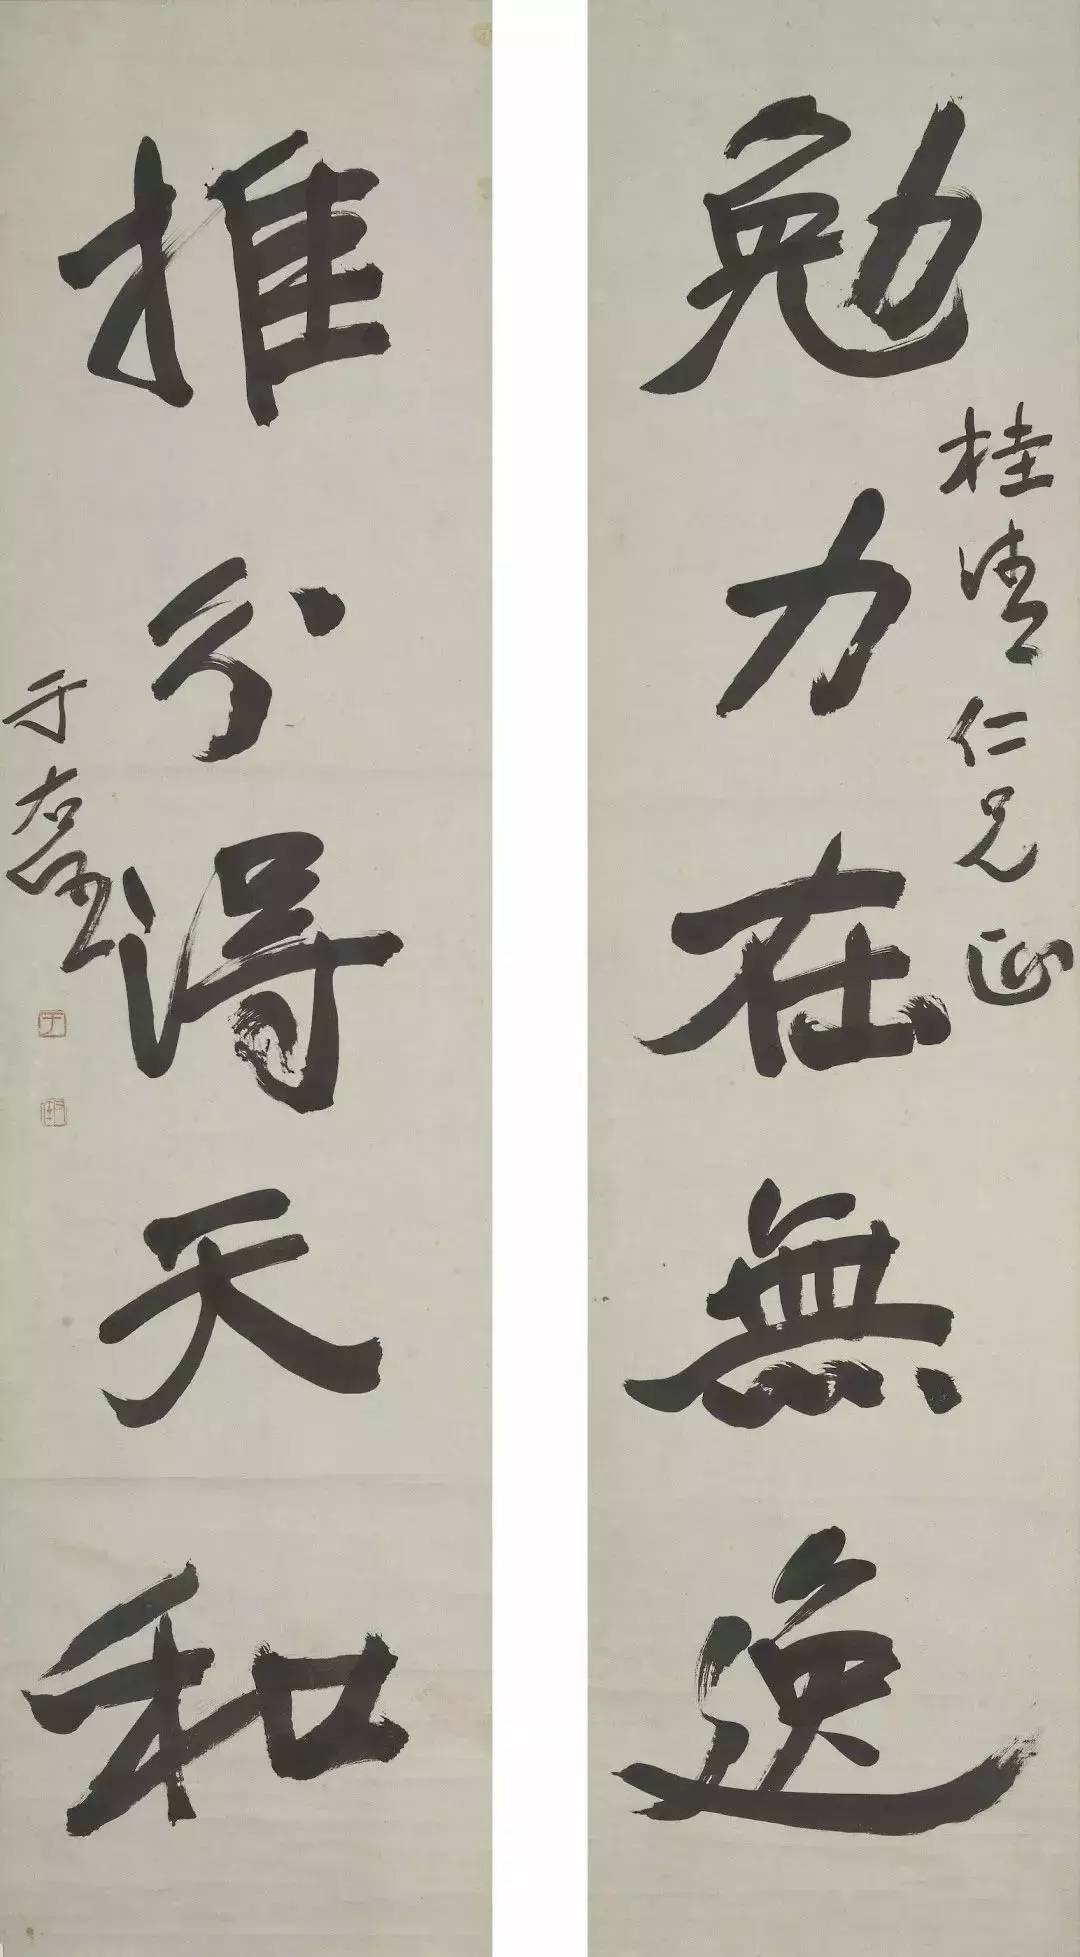 桂清仁兄正
勉力在無逸
推分得天和
于右任
于